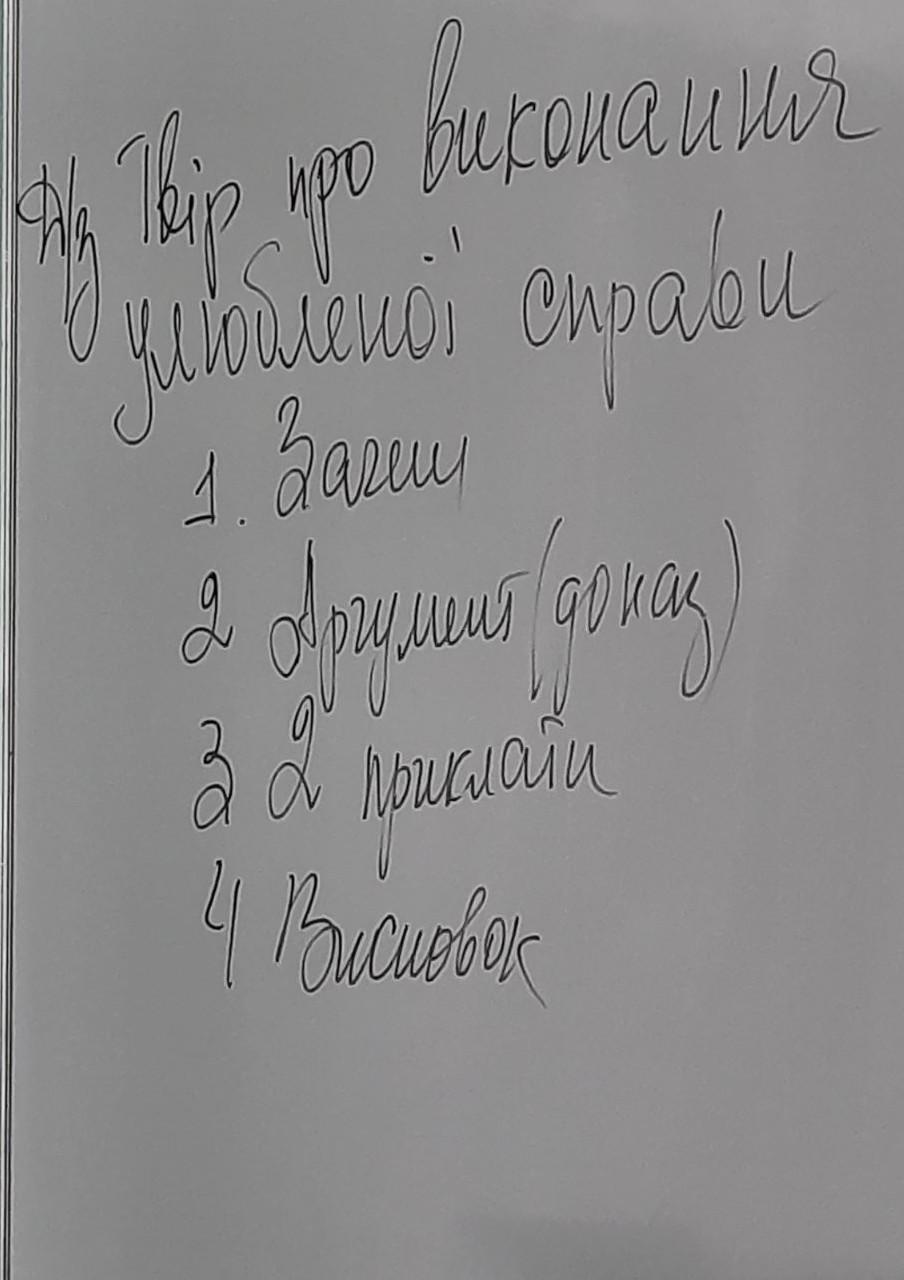 Д/з Твір про виконання
улюбленої справи
1. Зачин
2 Аргумент (доказ)
3 2 приклади
4 Висновок